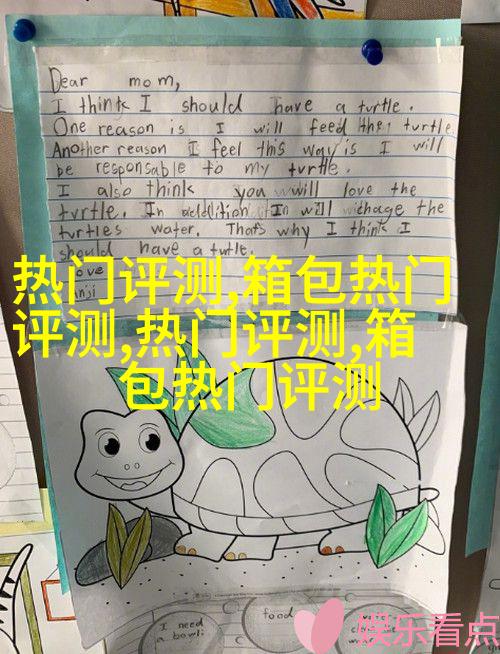 Dear mom,
I think I should have a turtle.
One reason is I will feed the turtle.
Another reason I feel this way is I will
be responsable to my turtle.
I also think you will love the
turtle. In addition I will chage the
turtles water. Thats why I think I
should have a turtle.
love
热门评测,箱包热门
评测,热门评测,箱
包热门评测
I need
a bowl
food
娱乐看点